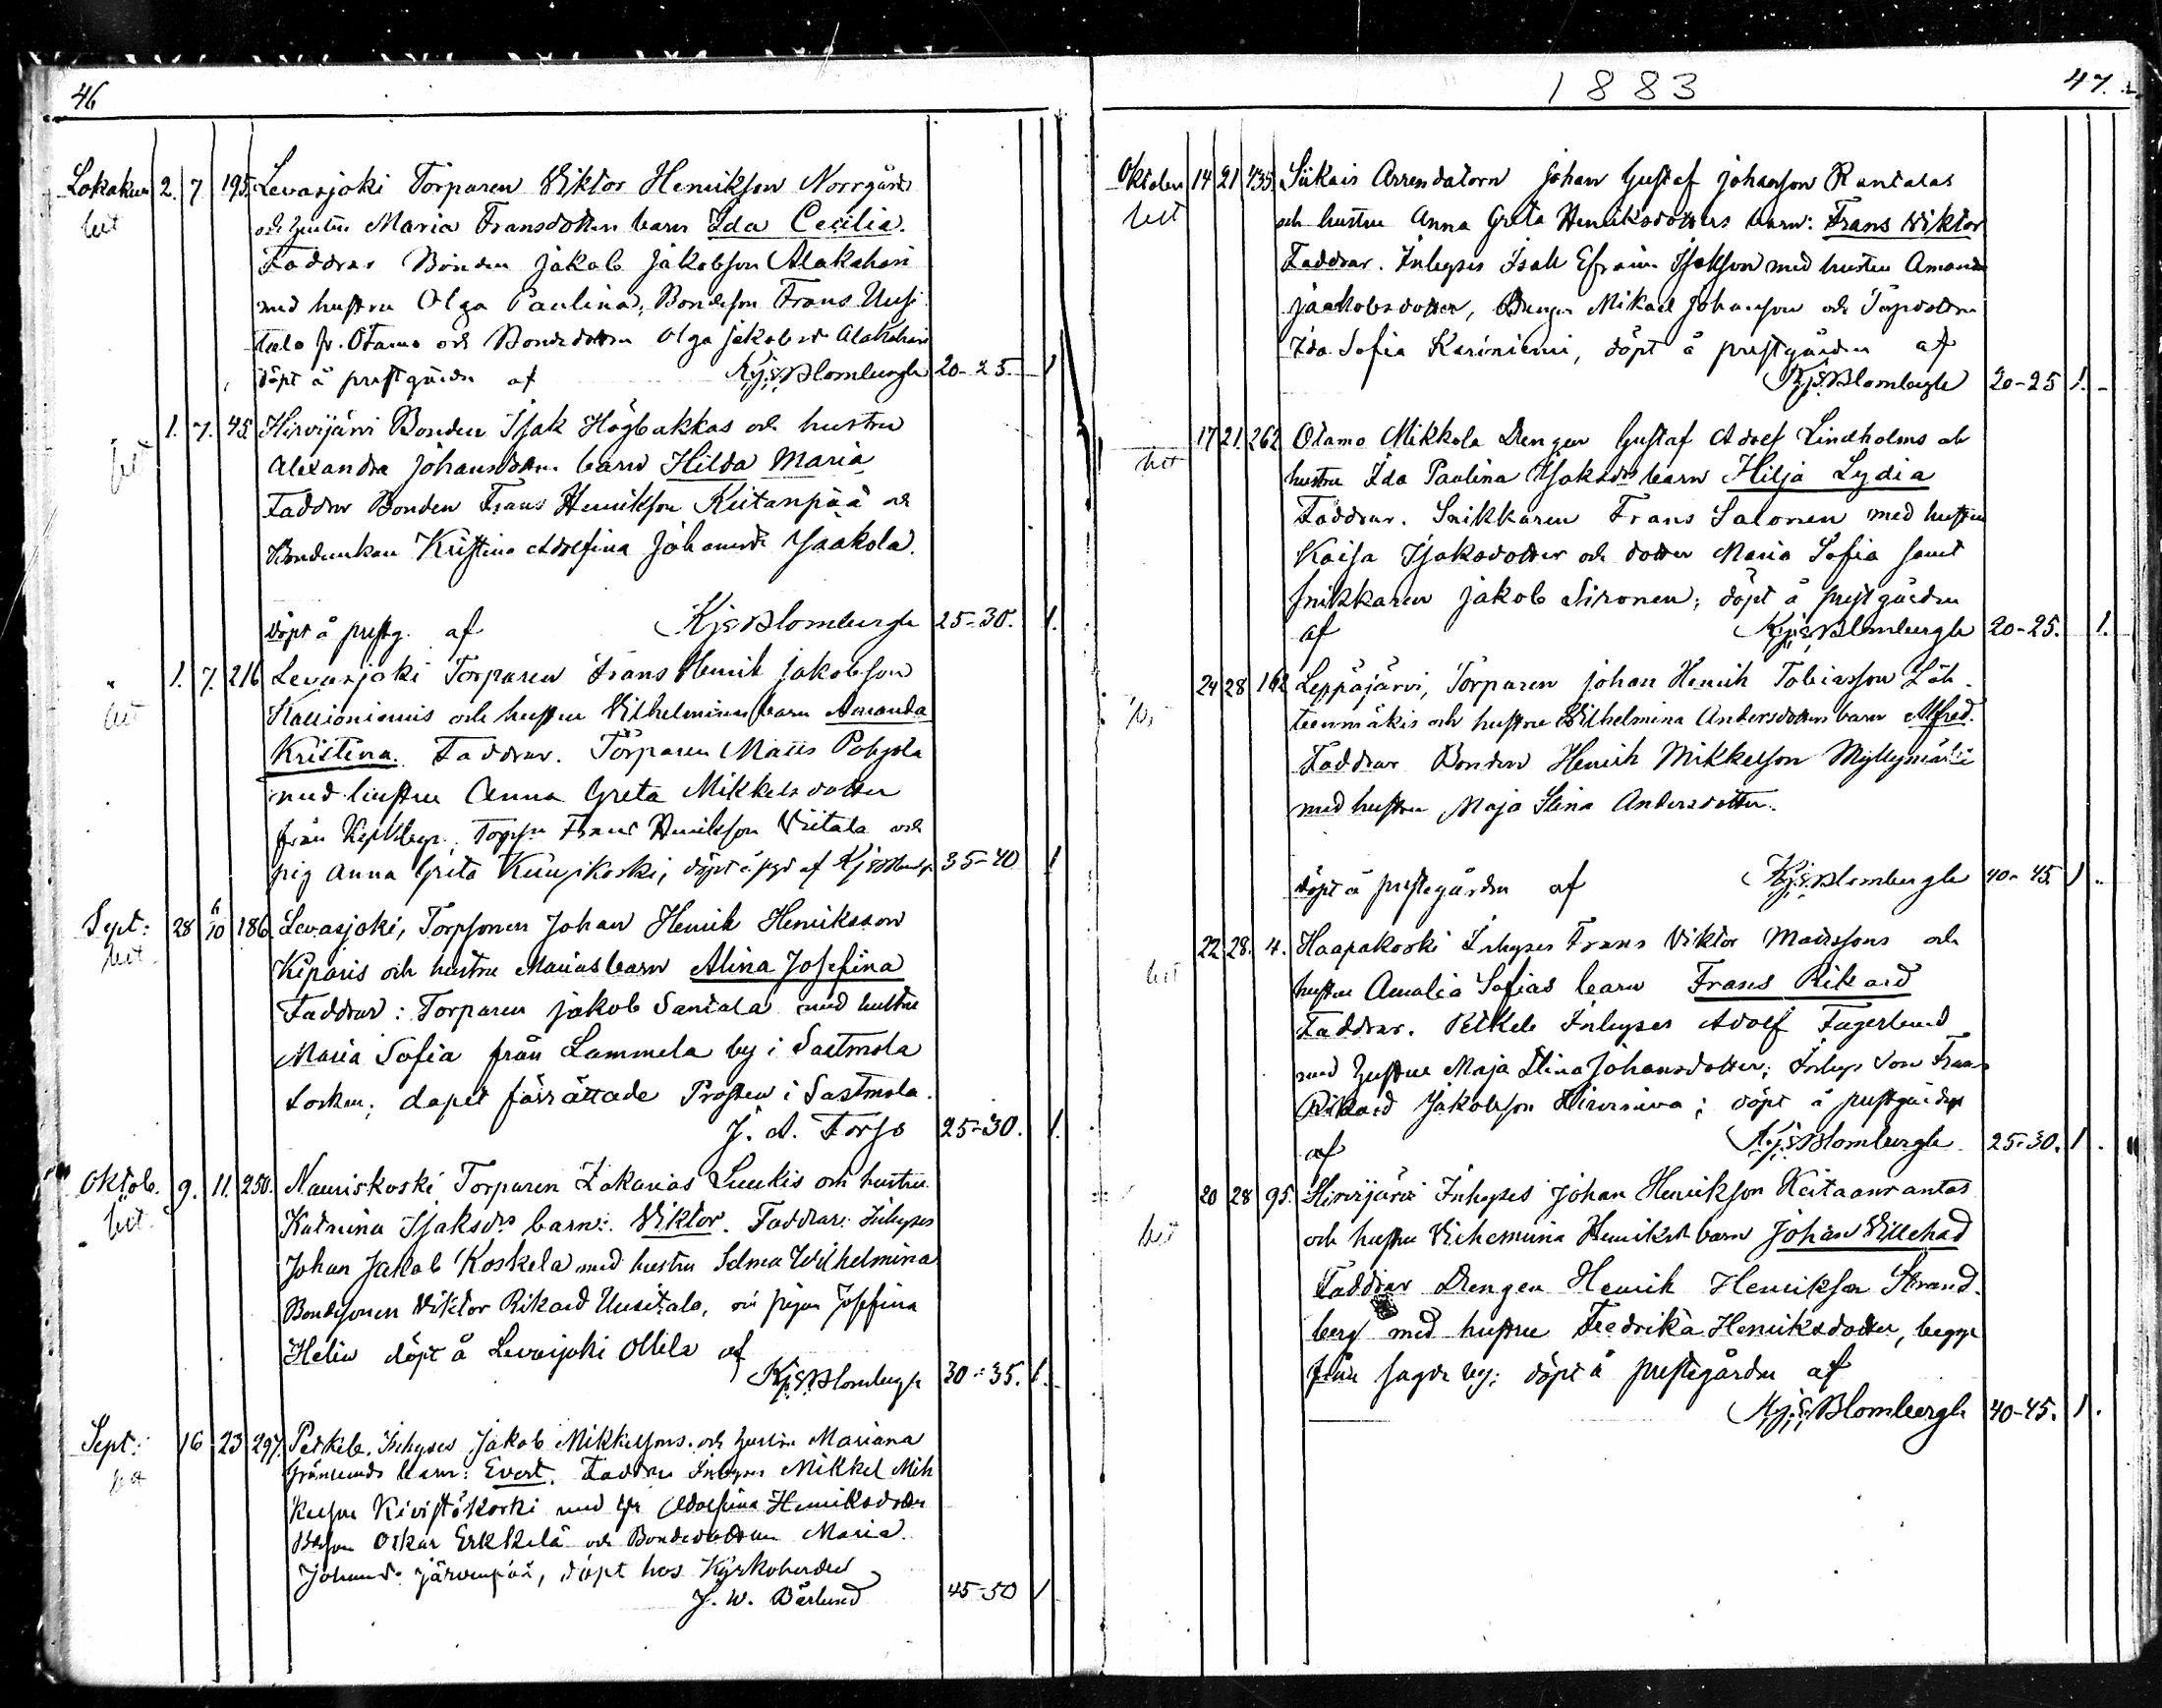 46
Lokakuu 2. 7 195. Levasjoki Torparen Viktor Henrikson Norrgårds
och hustru Maria Fransdotters barn Ida Cecilia.
Faddrar Bonden Jakob Jakobson Alakahari
med hustru Olga Paulina, Bondeson Frans Uusi
talo fr. Otamo och Bondedottern Olga Jakobsd Alakahari
döpt å prestgården af KjEBlombergh 20-25. 1
1. 7. 45. Hirvijärvi Bonden Isak Högbakkas och hustru
Alexandra Johansdotters barn Hilda Maria
Faddrar Bonden Frans Henrikson Kiitanpää och
Kristina Adolfina Johansdr Jaakola.
döpt å prestg. af KjEBlombergh 25-30. 1.
1. 7. 216 Levasjoki Torparen Frans Henrik Jakobson
Kallioniemis och hustru Vilhelminas barn Amanda
Kristina. Faddrar. Torparen Matts Pohjola
med hustru Anna Greta Mikkelsdotter
från Frans Henrikson Viitala och
pig Anna Greta Kuusikoski, döpt å pgd af KjEBlombergh 35-40 1
Sept: 28 6/10 186. Levasjoki, Torpsonen Johan Henrik Henriksson
Kiparis och hustru Marias barn Alina Josefina
Faddrar: Torparen Jakob Santala med hustru
Maria Sofia från Lammela by i Sastmola
Socken; dopet förrättade Prosten i Sastmola.
J. A. Forss 25-30. 1.
Oktob. 9. 11. 250. Nauriskoski Torparen Zakarias Luukis och hustru
Katarina Isaksdrs barn: Viktor. Faddrar: Inhyses
Johan Jakob Koskela med hustru Selma Wilhelmina
Bondesonen Viktor Rikard Uusitalo, och pigan Josefina
Helin döpt å Levasjoki Ollila af
KjEBlombergh 30-35. 1.
Sept: 16 23 297. Petkele. Inhyses Jakob Mikkelsons och hustru Mariana
Grönlunds barn: Evert. Faddrar Inhyses Mikkel Mik
kelson Kivistökoski med hu Adolfina Henriksdotter
Bdson Oskar Erkkilä och Bondedottern Maria
Johansdr Järvenpää, döpt hos Kyrkoherden
J. W. Bärlund 45-50 1
1883
47.
Oktober 14 21 435 Siikais Arrendatorn Johan Gustaf Johanson Rantalas
och hustru Anna Greta Henriksdotters barn: Frans Viktor
Faddrar. Inhyses Isak Efraim Isakson med hustru Amanda
Jaakobsdotter, Drengen Mikael Johanson och Torpdottern
Ida Sofia Kariniemi, döpt å prestgården af
KjEBlombergh 20-25 1.
17 21. 262 Otamo Mikkola Drengen Gustaf Adolf Lindholms och
hustru Ida Paulina Isaksdrs barn Hilja Lydia
Faddrar. Snikkaren Frans Salonen med hustru
Kaisa Isaksdotter och dotter Maria Sofia samt
snikkaren Jakob Sironen; döpt å prestgården
af KjEBlombergh 20-25. 1.
24 28 162 Leppäjärvi, Torparen Johan Henrik Tobiasson Läh
teenmäkis och hustru Wilhelmina Andersdotters barn Alfred.
Faddrar Bonden Henrik Mikkelson Myllymäki
med hustru Maja Stina Andersdotter.
döpt å prestegården af KjEBlombergh 40-45. 1.
22. 28. 4. Haapakoski Inhyses Frans Viktor Matssons och
hustru Amalia Sofias barn Frans Rikard
Faddrar. Petkele Inhyses Adolf Fagerlund
med hustru Maja Stina Johansdotter; Inhys Son Frans
Rikard Jakobson Hirvineva; döpt å prestgården
af KjEBlombergh 25-30. 1.
20 28 95. Hirvijärvi Inhyses Johan Henrikson Keitaanrantas
och hustru Vilhelmina Henriksd barn Johan Villehad
Faddrar Drengen Henrik Henrikson Strand
berg med hustru Fredrika Henriksdotter, begge
från sagde by; döpt å prestegården af
KjEBlombergh 40-45. 1.